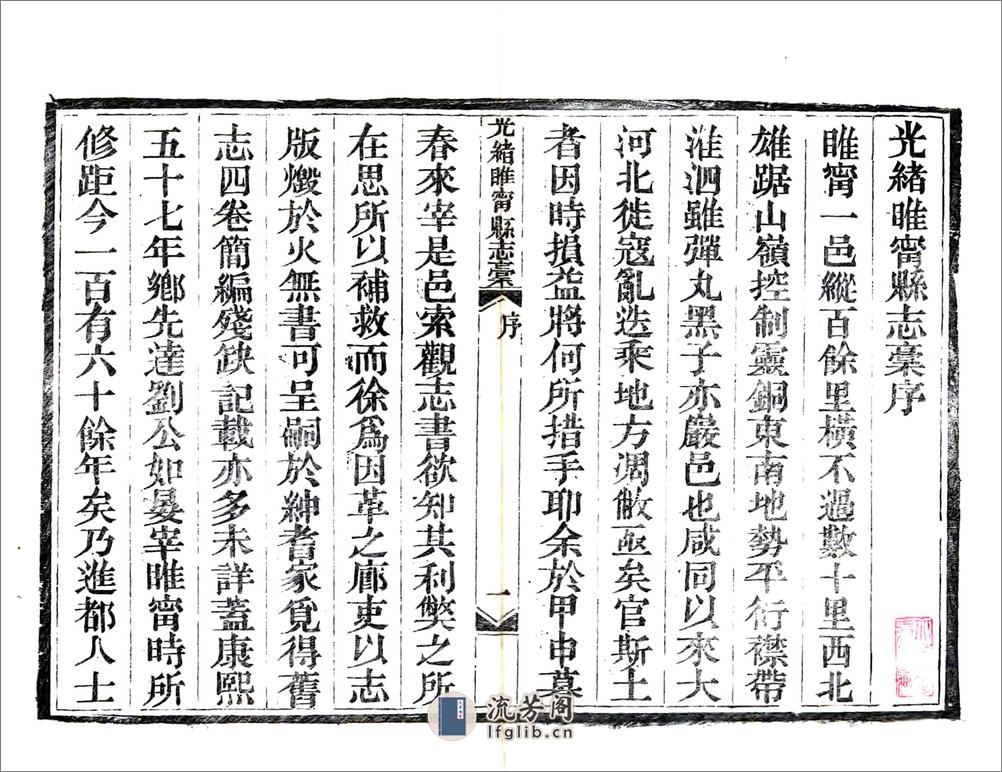 光緒睢甯縣志稾序
睢甯一邑縱百餘里橫不過數十里西北
雄踞山嶺控制靈銅東南地勢平衍襟帶
淮泗雖彈丸黑子亦嚴邑也咸同以來大
河北徙寇亂迭乘地方凋敝亟矣官斯土
者因時損益將何所措手耶余於甲申暮
光緒睢甯縣志稾
序
一
春來宰是邑索觀志書欲知其利弊之所
在思所以補救而徐爲因革之廊吏以志
版燬於火無書可呈嗣於紳耆家覓得舊
志四卷簡編殘缺記載亦多未詳蓋康熙
五十七年鄉先達劉公如晏宰睢甯時所
修距今一百有六十餘年矣乃進都人士
流芳阁
lfglib.cn